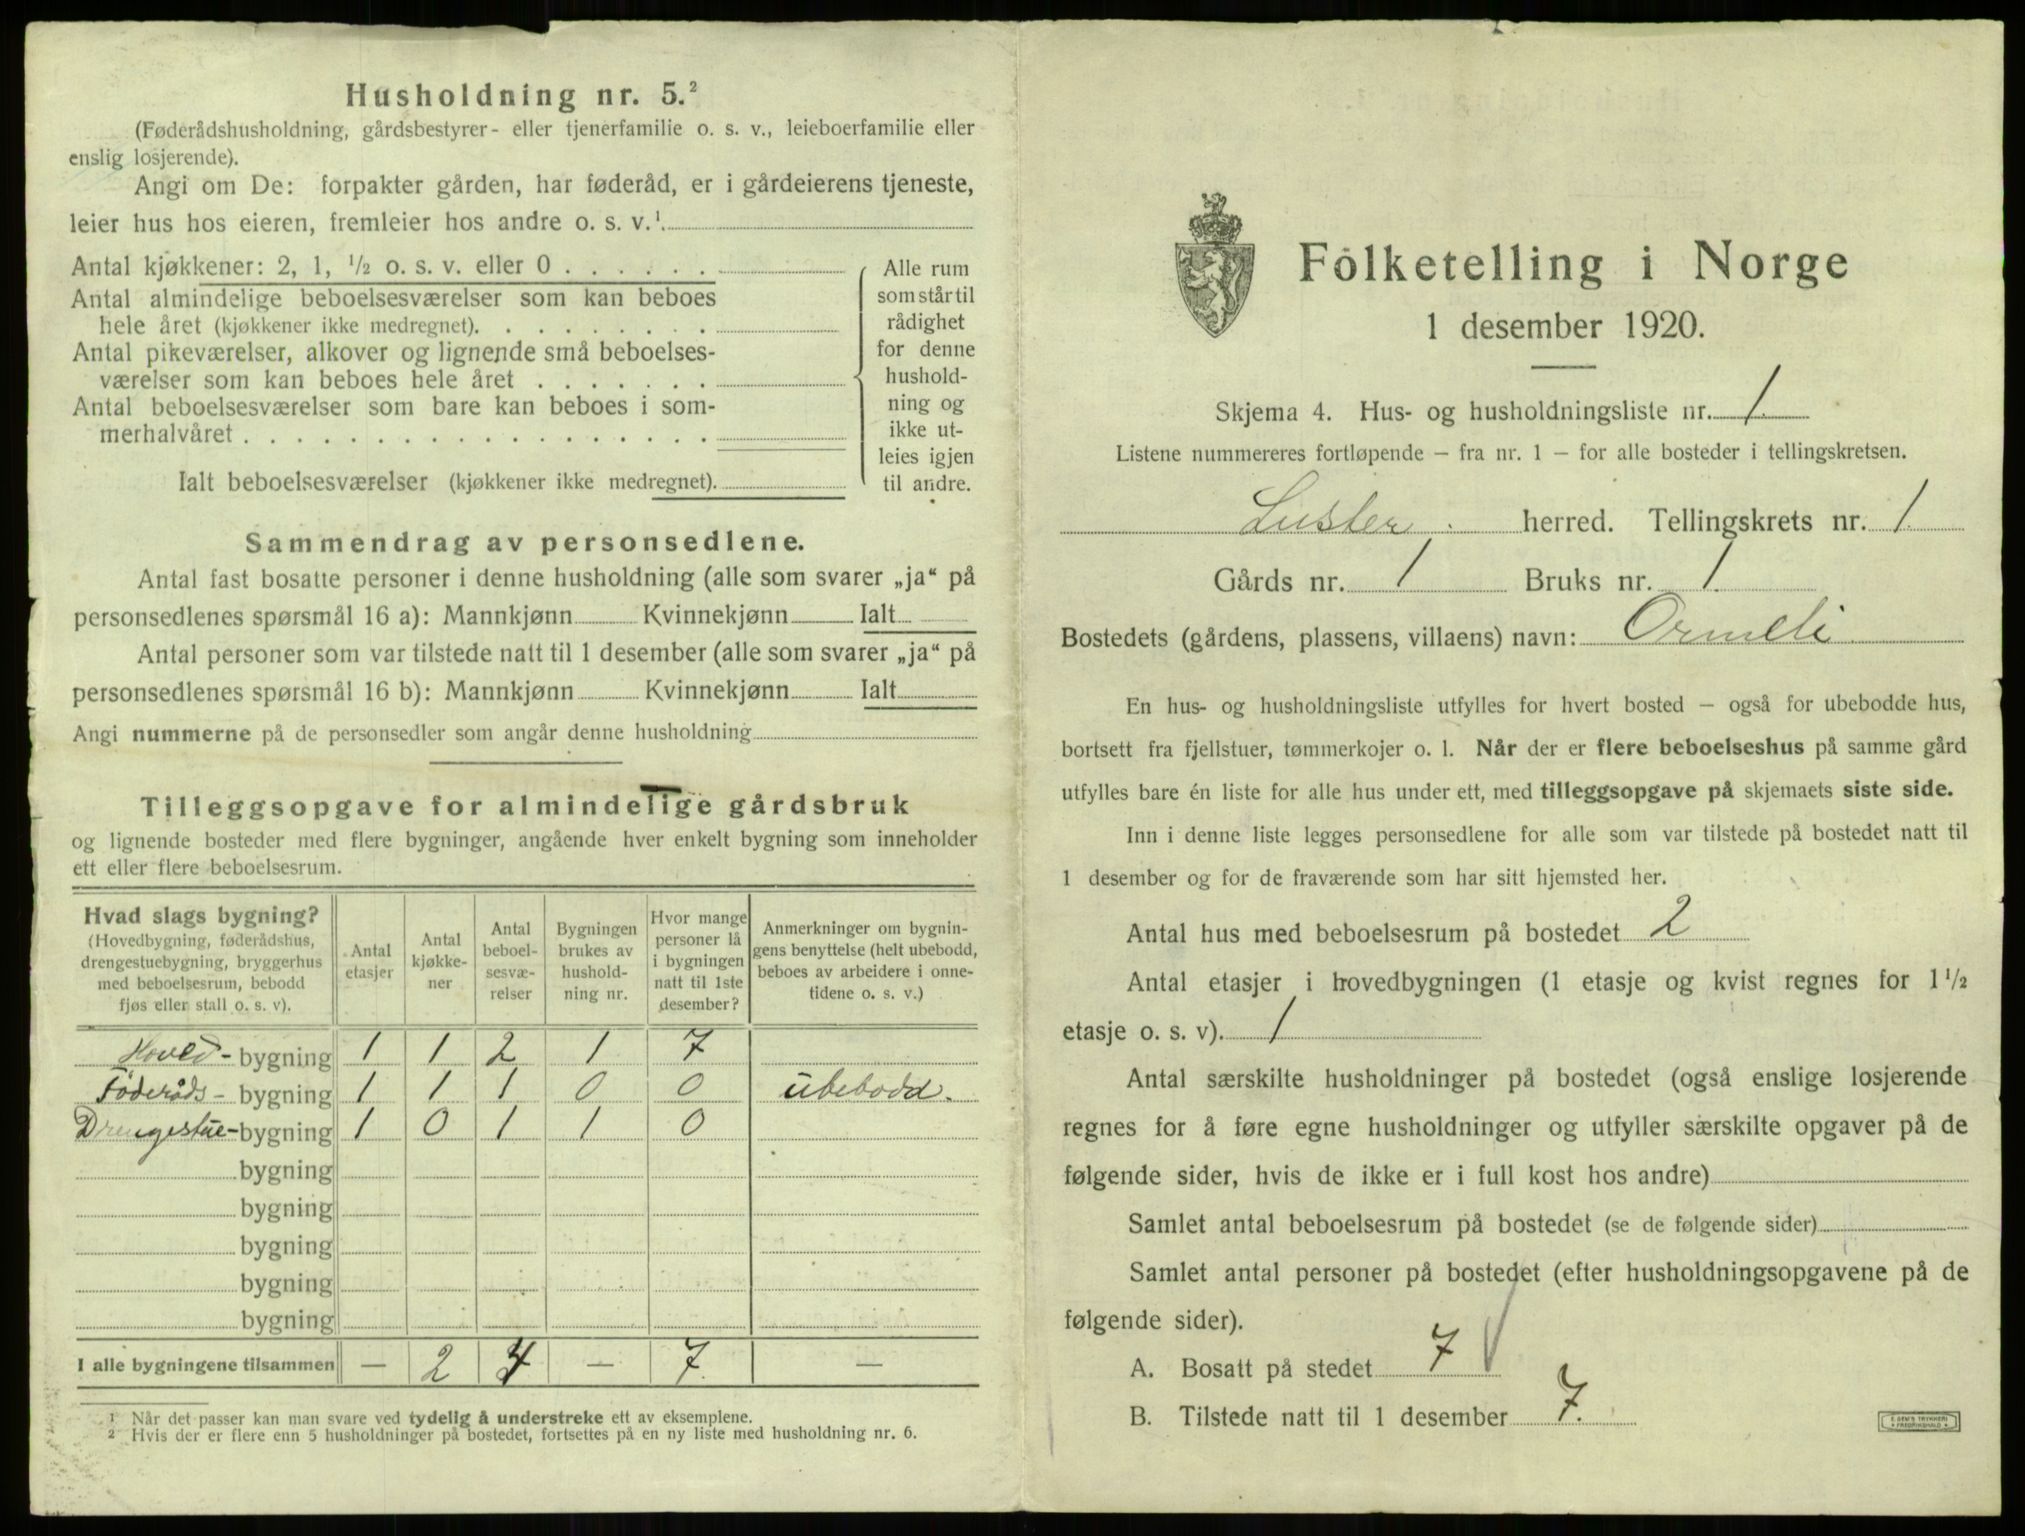 Husholdning nr. 5.²
(Føderådshusholdning, gårdsbestyrer- eller tjenerfamilie o. s. v., leieboerfamilie eller
enslig losjerende).
Angi om De: forpakter gården, har føderåd, er i gårdeierens tjeneste,
leier hus hos eieren, fremleier hos andre o. s. v.¹
Antal kjøkkener: 2, 1, ½ o. s. v. eller 0 . . . . . .
Antal almindelige beboelsesværelser som kan beboes
hele året (kjøkkener ikke medregnet). . . . . . . . .
Antal pikeværelser, alkover og lignende små beboelses-
værelser som kan beboes hele året . . . . . . .
Antal beboelsesværelser som bare kan beboes i som-
merhalvåret . . . . . . . . . . . . . . . . . .
Ialt beboelsesværelser (kjøkkener ikke medregnet).
Alle rum
som står til
rådighet
for denne
hushold-
ning og
ikke ut-
leies igjen
til andre.
Sammendrag av personsedlene.
Antal fast bosatte personer i denne husholdning (alle som svarer „ja“ på
personsedlenes spørsmål 16 a): Mannkjønn Kvinnekjønn Ialt
Antal personer som var tilstede natt til 1 desember (alle som svarer „ja“ på
personsedlenes spørsmål 16 b): Mannkjønn Kvinnekjønn Ialt
Angi nummerne på de personsedler som angår denne husholdning
Tilleggsopgave for almindelige gårdsbruk
og lignende bosteder med flere bygninger, angående hver enkelt bygning som inneholder
ett eller flere beboelsesrum.
Hvad slags bygning?
(Hovedbygning, føderådshus,
drengestuebygning, bryggerhus
med beboelsesrum, bebodd
fjøs eller stall o. s. v).
Antal
etasjer
Antal
kjøkke-
ner
Antal
beboel-
sesvæ-
relser
Bygningen
brukes av
hushold-
ning nr.
Hvor mange
personer lå
i bygningen
natt til 1ste
desember?
Anmerkninger om bygnin-
gens benyttelse (helt ubebodd,
beboes av arbeidere i onne-
tidene o. s. v.)
Hoved- bygning 1 1 2 1 7
Föderåds- bygning 1 1 1 0 0 ubebodd.
Drengestue- bygning 1 0 1 1 0
bygning
bygning
bygning
bygning
bygning
I alle bygningene tilsammen — 2 4 — 7. —
¹ Når det passer kan man svare ved tydelig å understreke ett av eksemplene.
² Hvis der er flere enn 5 husholdninger på bostedet, fortsettes på en ny liste med husholdning nr. 6.
Folketelling i Norge
1 desember 1920.
Skjema 4. Hus- og husholdningsliste nr. 1
Listene nummereres fortløpende – fra nr. 1 – for alle bosteder i tellingskretsen.
Luster. herred. Tellingskrets nr. 1.
Gårds nr. 1 Bruks nr. 1.
Bostedets (gårdens, plassens, villaens) navn: Ormeli
En hus- og husholdningsliste utfylles for hvert bosted – også for ubebodde hus,
bortsett fra fjellstuer, tømmerkojer o. l. Når der er flere beboelseshus på samme gård
utfylles bare én liste for alle hus under ett, med tilleggsopgave på skjemaets siste side.
Inn i denne liste legges personsedlene for alle som var tilstede på bostedet natt til
1 desember og for de fraværende som har sitt hjemsted her.
Antal hus med beboelsesrum på bostedet 2
Antal etasjer i hovedbygningen (1 etasje og kvist regnes for 1½
etasje o. s. v). 1
Antal særskilte husholdninger på bostedet (også enslige losjerende
regnes for å føre egne husholdninger og utfyller særskilte opgaver på de
følgende sider, hvis de ikke er i full kost hos andre)
Samlet antal beboelsesrum på bostedet (se de følgende sider)
Samlet antal personer på bostedet (efter husholdningsopgavene på de
følgende sider).
A. Bosatt på stedet 7
B. Tilstede natt til 1 desember 7.
E. SEM'S TRYKKERI
FREDRIKSHALD